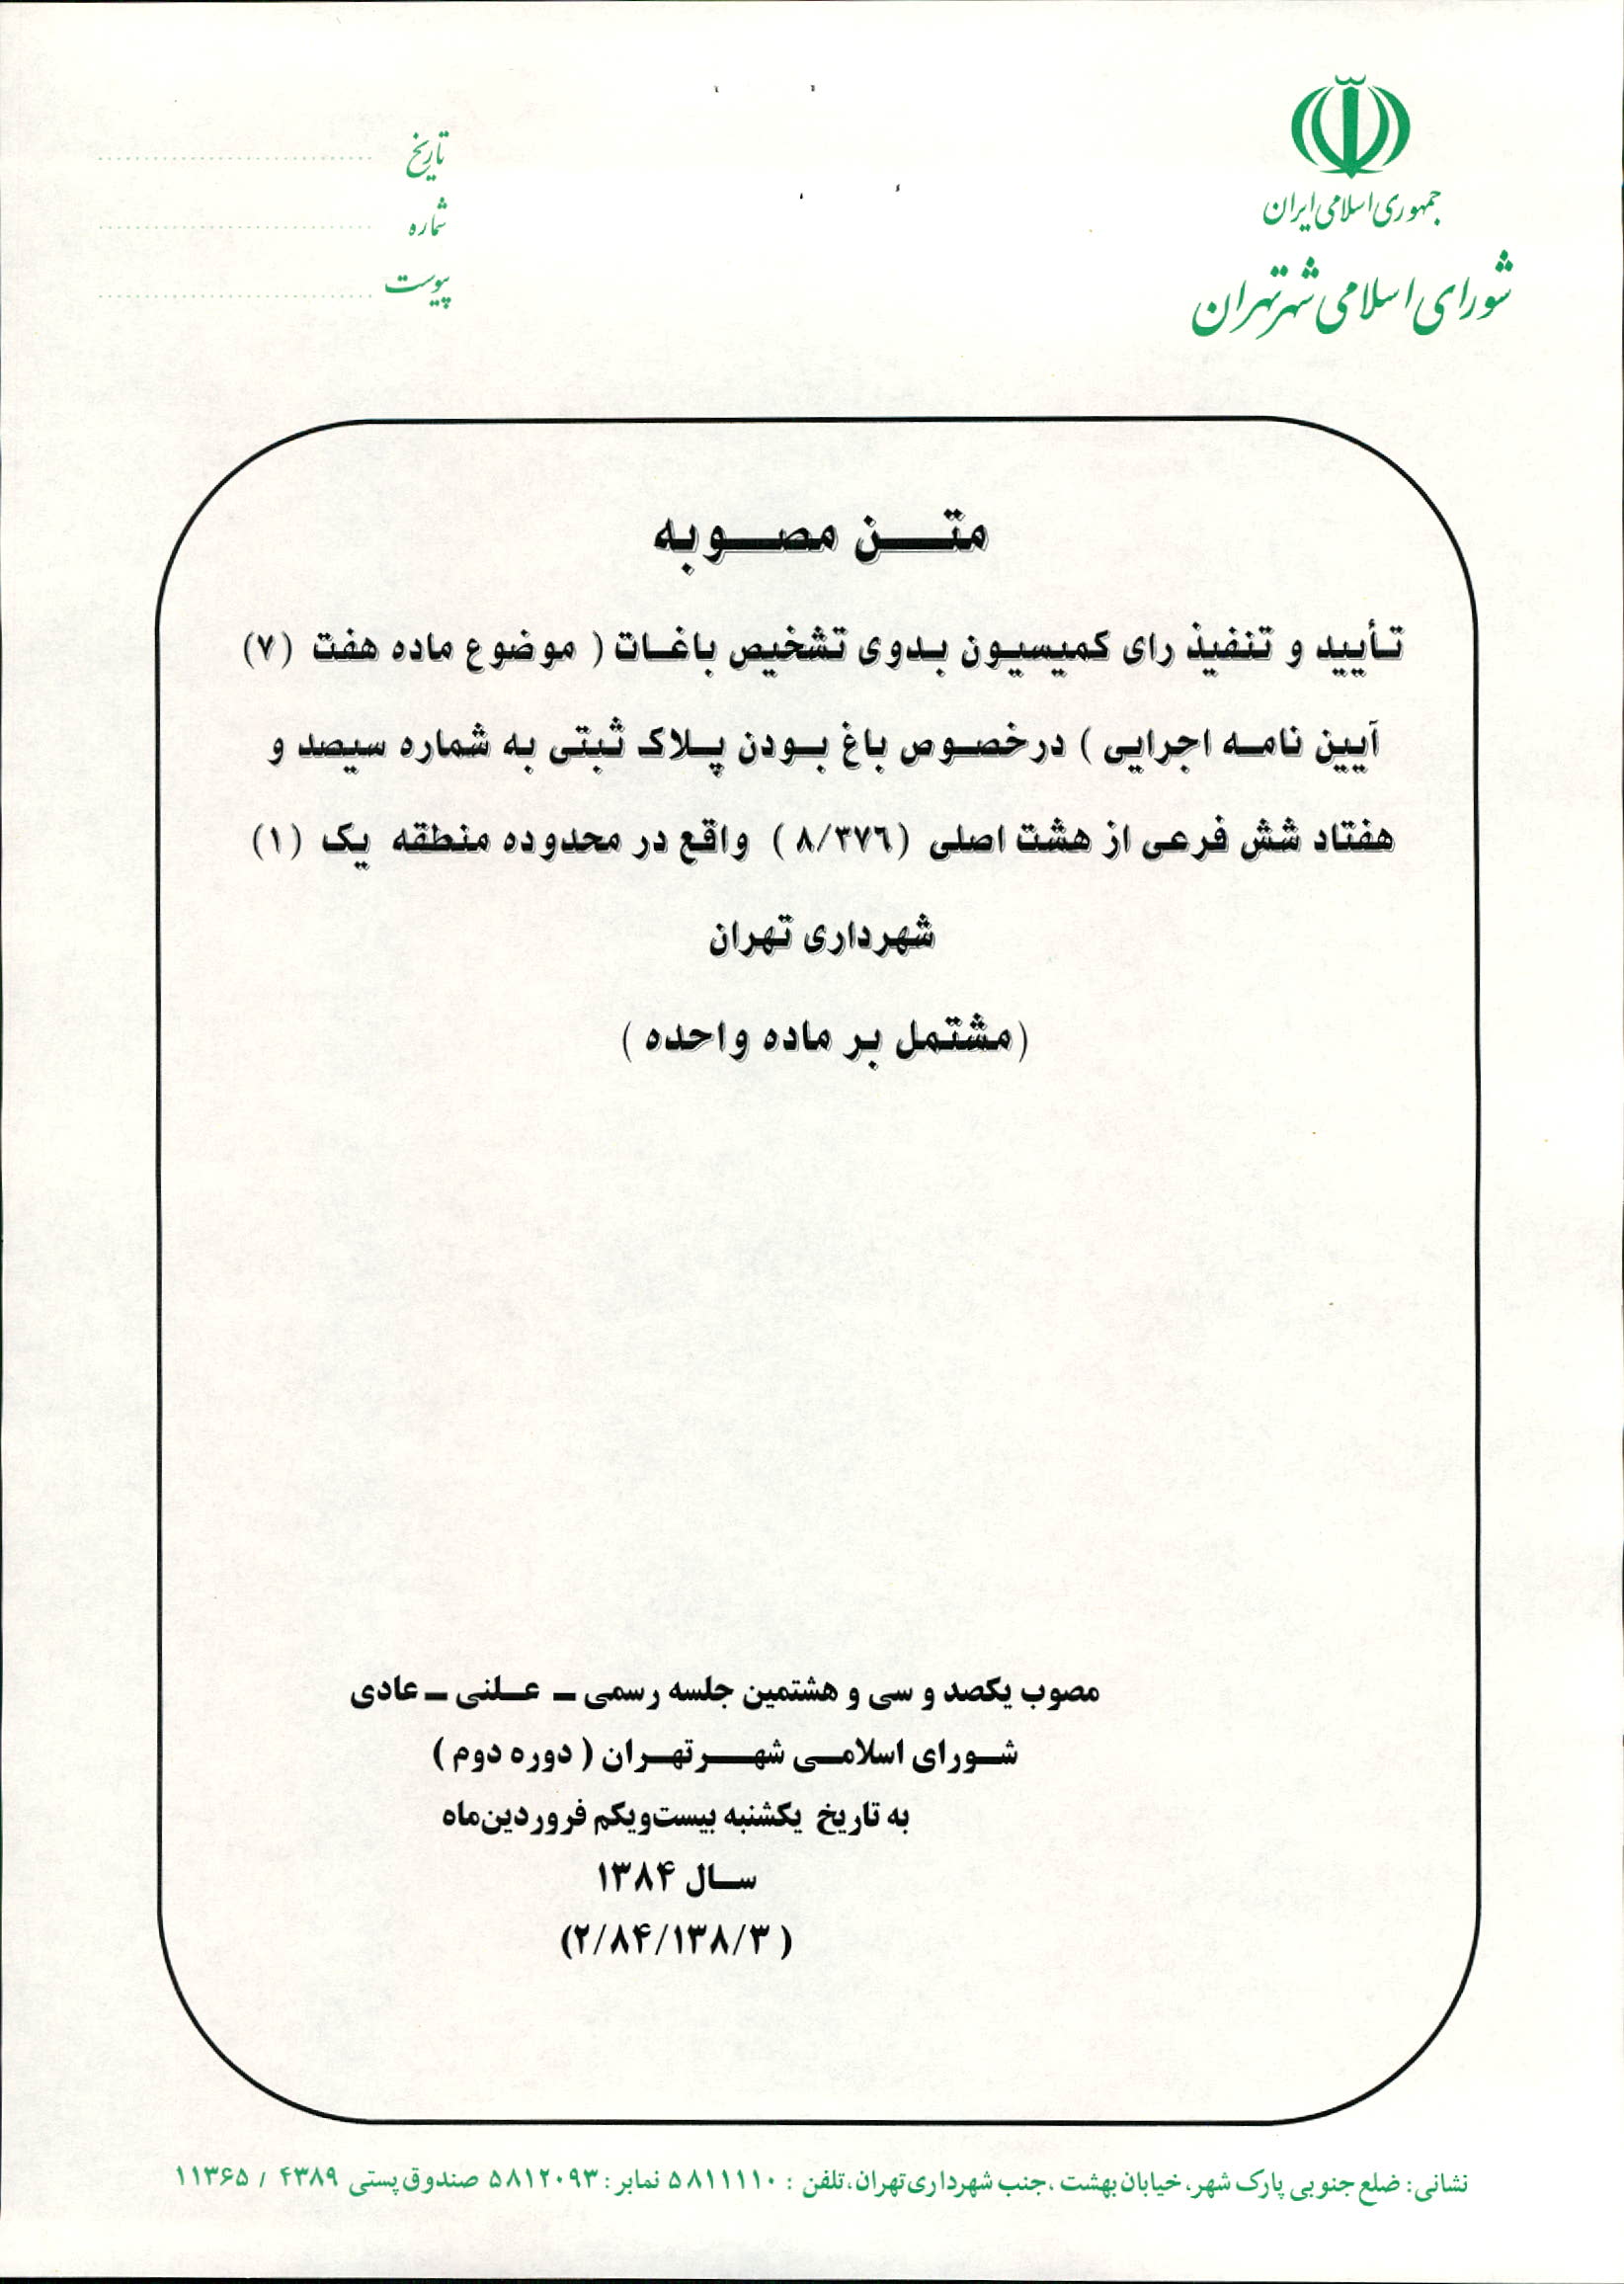 جمهوری اسلامی ایران
شورای اسلامی شهر تهران
تاریخ
شماره
پیوست
متن مصوبه
تأیید و تنفیذ رای کمیسیون بدوی تشخیص باغات ( موضوع ماده هفت (۷)
آیین نامه اجرایی ) درخصوص باغ بودن پلاک ثبتی به شماره سیصد و
هفتاد شش فرعی از هشت اصلی (۸/۳۷۶) واقع در محدوده منطقه یک (۱)
شهرداری تهران
(مشتمل بر ماده واحده )
مصوب یکصد و سی و هشتمین جلسه رسمی ـ علنی ـ عادی
شورای اسلامی شهر تهران ( دوره دوم )
به تاریخ یکشنبه بیست‌ویکم فروردین‌ماه
سال ۱۳۸۴
(۲/۸۴/۱۳۸/۳ )
نشانی: ضلع جنوبی پارک شهر، خیابان بهشت ،جنب شهرداری تهران،تلفن : ۵۸۱۱۱۱۰ نمابر: ۵۸۱۲۰۹۳ صندوق پستی ۴۳۸۹ / ۱۱۳۶۵